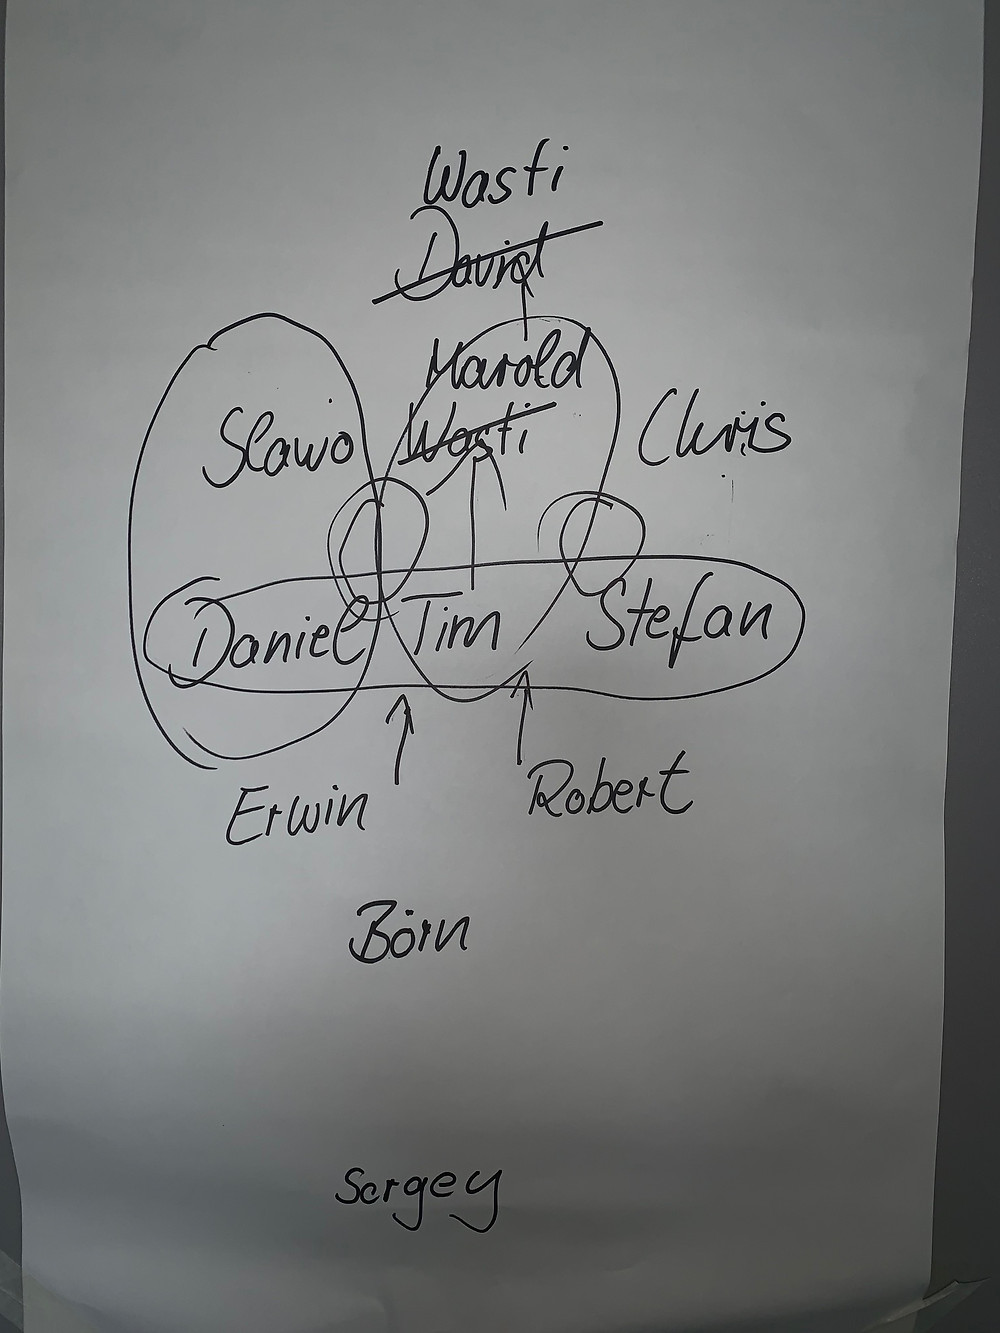 Wasti
David
Harold
Slawo Wasti Chris
Daniel Tim Stefan
Erwin Robert
Börn
Sergey